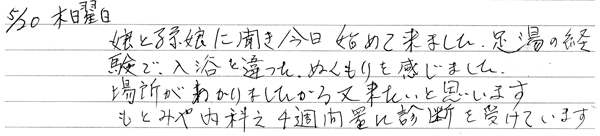 5/20 木曜日
娘と孫娘に聞き今日始めて来ました。足湯の経
験で、入浴と違った、ぬくもりを感じました。
場所がわかりましたから又来たいと思います
もとみや内科え4週間置に診断を受けています